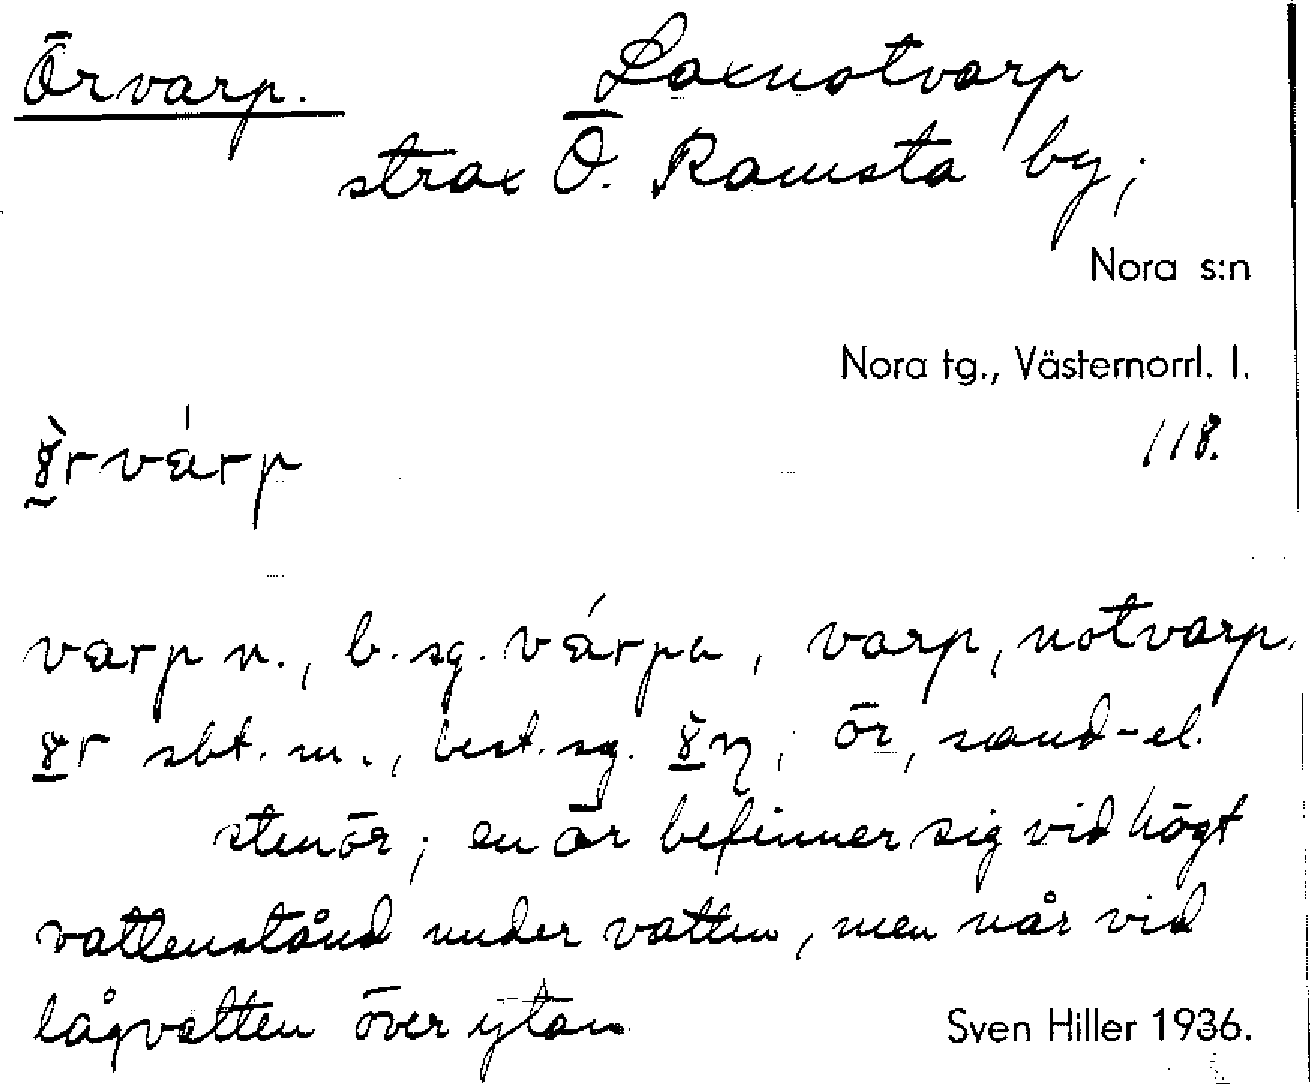 Örvarp. Laxnotvarp
strax Ö. Ramsta by;
Nora s:n
Nora tg., Västernorrl. l.
118.
varp n., b. sg. várpa, varp, notvarp.
sbt. m., best. sg. ; ör, sand- el.
stenör; en ör befinner sig vid högt
vattenstånd under vatten, men når vid
lågvatten över ytan
Sven Hiller 1936.